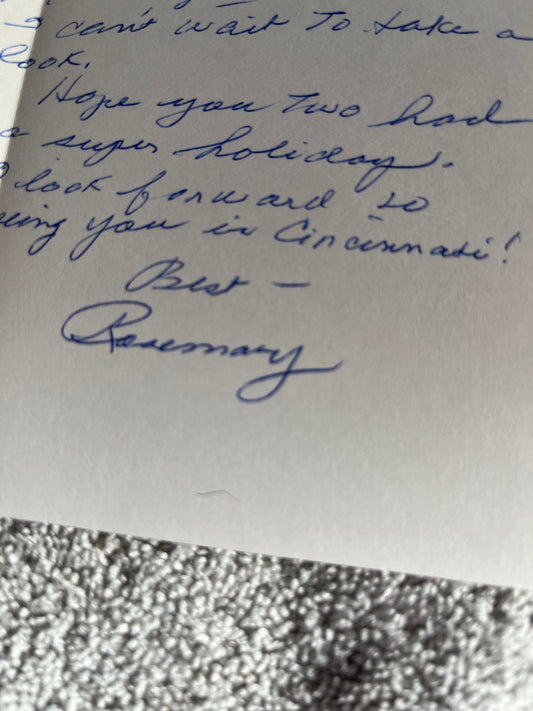 I can't wait to take a
look.
Hope you two had
a super holiday.
I look forward to
eing you in Cincinnati!
Best —
Rosemary